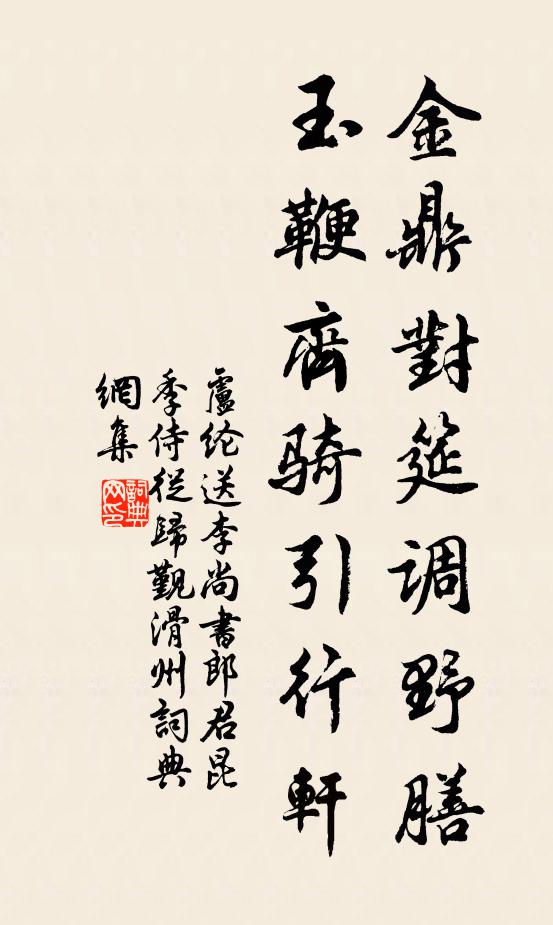 金鼎對筵调野膳
玉鞭齊骑引行軒
盧纶送李尚書郎君昆
季侍從歸覲滑州詞典
網集
詞典
网印